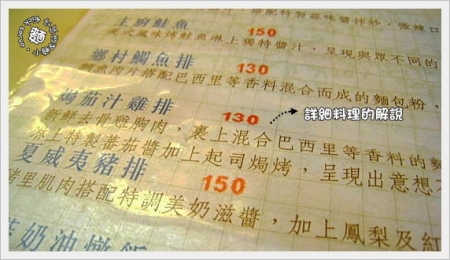 搭配特製蒜味醬拌炒,微辣口
主廚鮭魚 150
美式風味烤鮭魚淋上獨特醬汁,呈現與眾不同的
鄉村鯛魚排 130
鯛魚肉片搭配巴西里等香料混合而成的麵包粉,
焗茄汁雞排 130
新鮮去骨雞胸肉,裹上混合巴西里等香料的麵
淋上特製蕃茄醬加上起司焗烤,呈現出意想不
詳細料理的解說
夏威夷豬排 150
里肌肉搭配特調美奶滋醬,加上鳳梨及紅
奶油燉飯